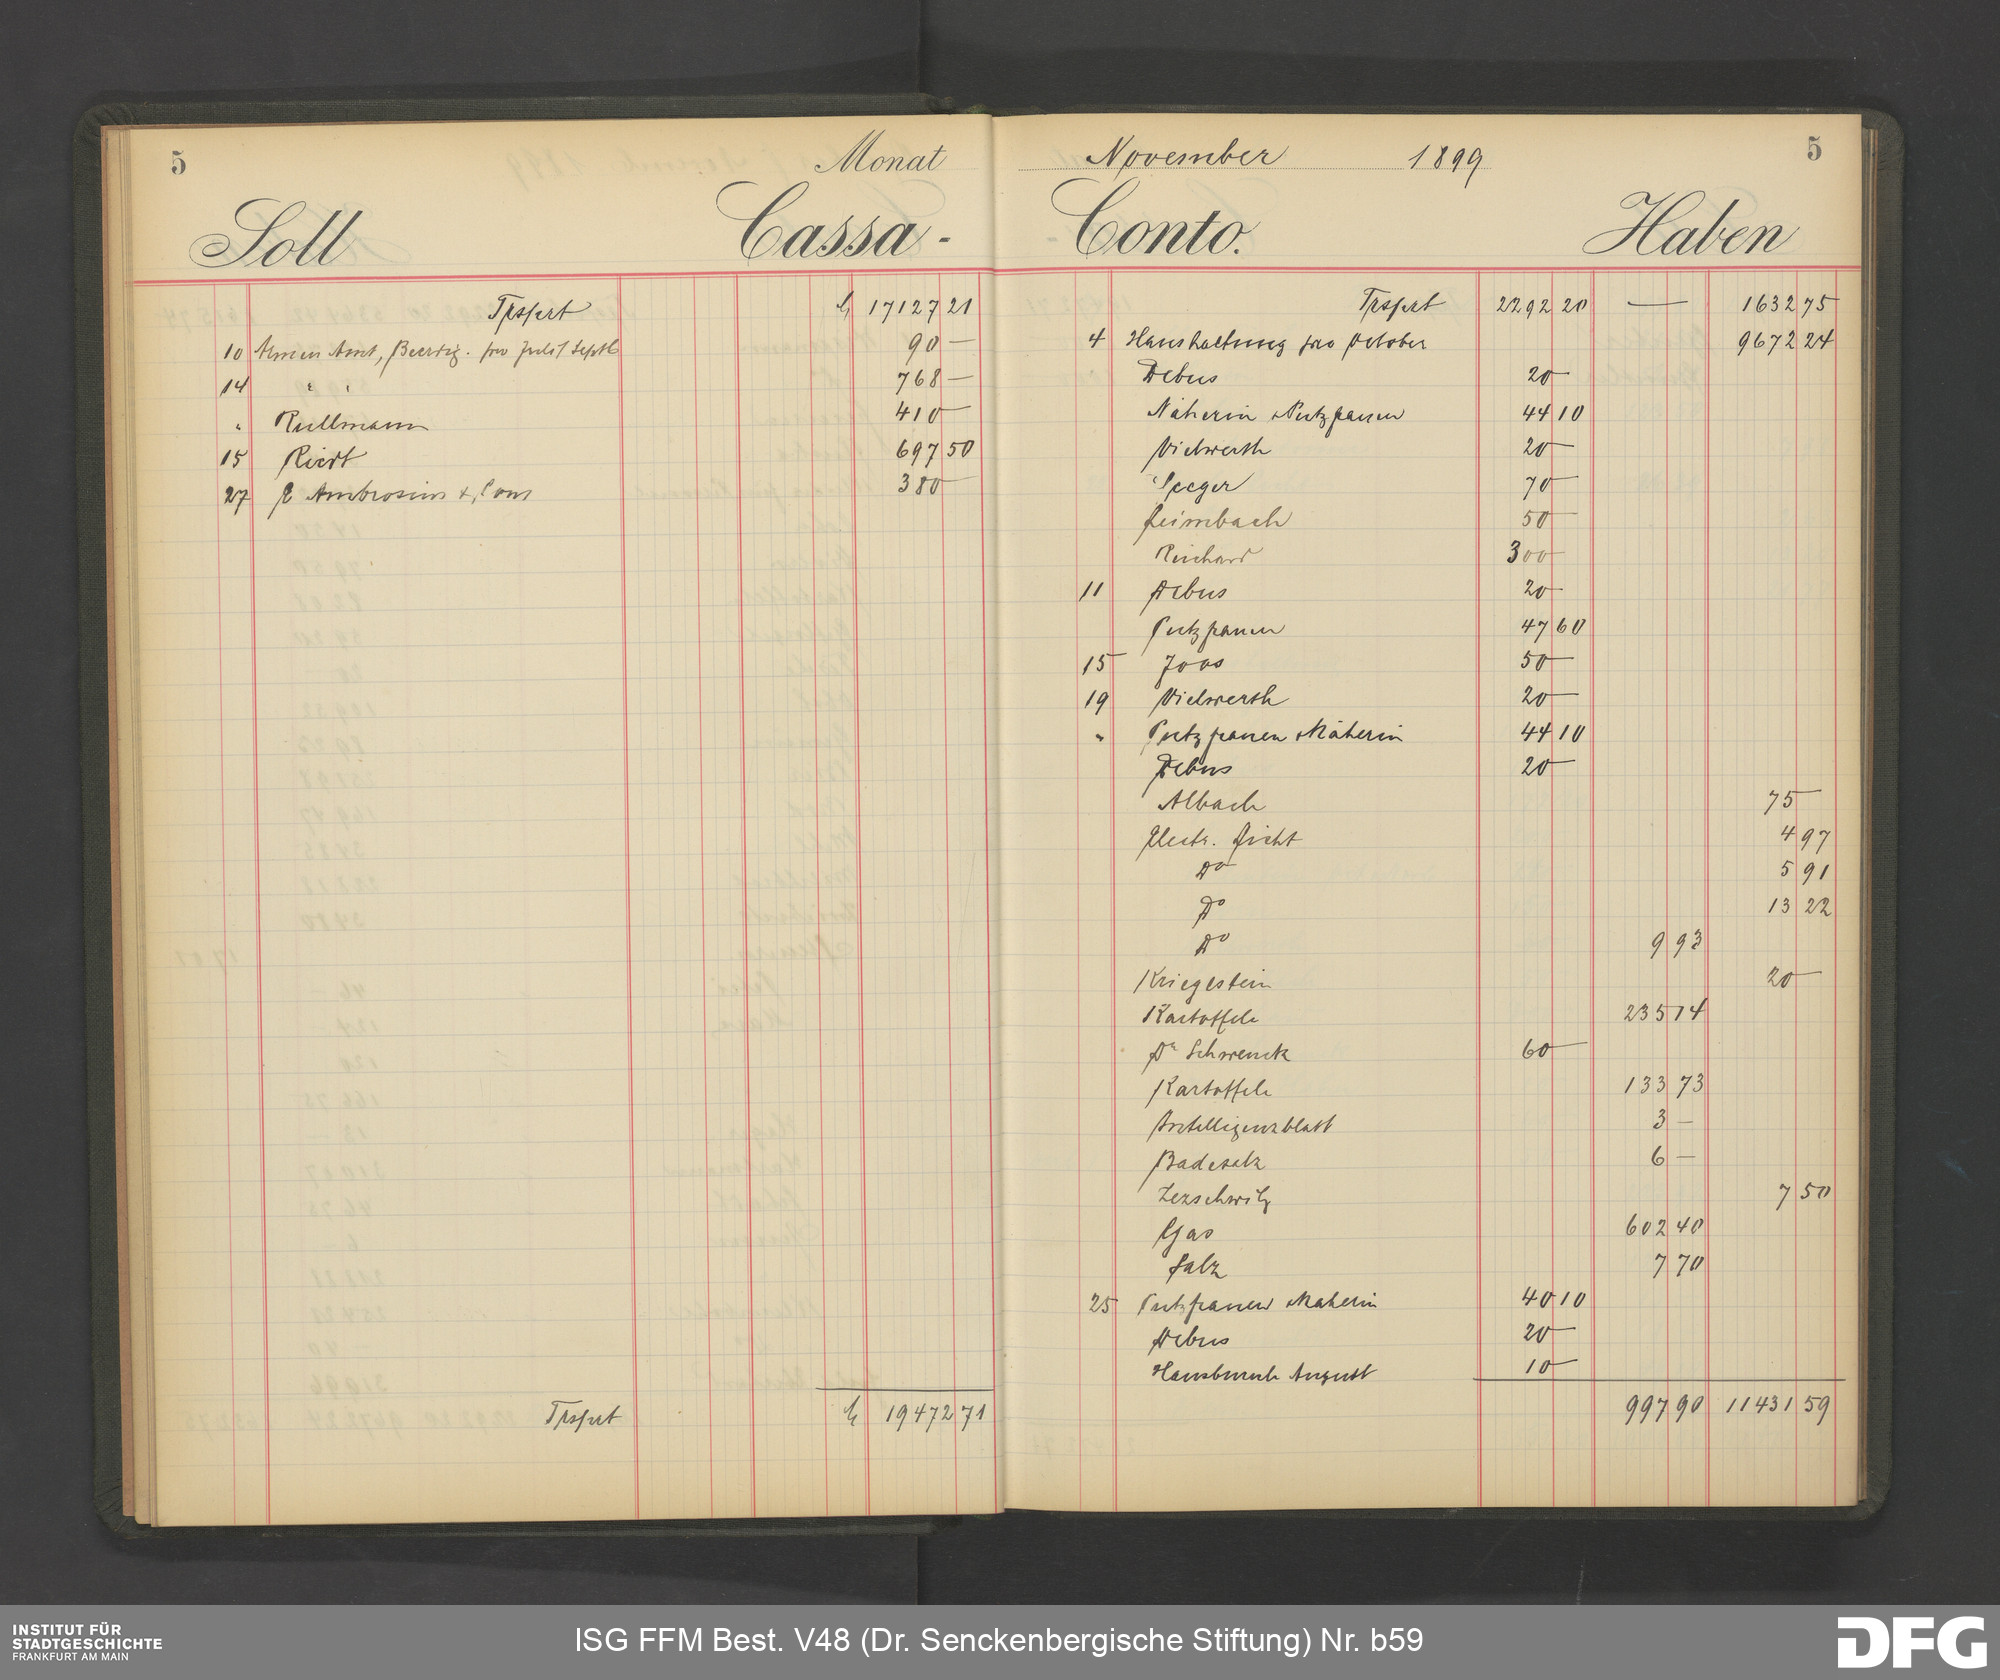 5
Monat
Soll
Cassa-
Trsprt 17127 21
10 Armen Amt, Beerdig. pro Juli/Septb 90 —
14 " " 768 —
" Rullmann 410 —
15 Riedt 697 50
27 E Ambrosius & Cons 380 —
Trsprt 19472 71
November 1899
5
Conto.
Haben
Trsprt 2292 20 — 1632 75
4 Haushaltung pro October 9672 24
Debus 20 —
Näherin & Putzfrauen 44 10
Vielwerth 20 —
Seeger 70 —
Leimbach 50 —
Reichard 300 —
11 Debus 20 —
Putzfrauen 47 60
15 Joos 50 —
19 Vielwerth 20 —
" Putzfrauen & Näherin 44 10
Debus 20 —
Albach 75 —
Electr. Licht 4 97
Do 5 91
Do 13 22
Do 9 93
Kriegstein 20 —
Kartoffeln 235 14
Dr Schwenck 60 —
Kartoffeln 133 73
Intelligenzblatt 3 —
Badesalz 6 —
Zezschwitz 7 50
Gas 602 40
Salz 7 70
25 Putzfrauen & Näherin 40 10
Debus 20 —
Hausbursch August 10 —
997 90 11431 59
INSTITUT FÜR
STADTGESCHICHTE
FRANKFURT AM MAIN
ISG FFM Best. V48 (Dr. Senckenbergische Stiftung) Nr. b59
DFG